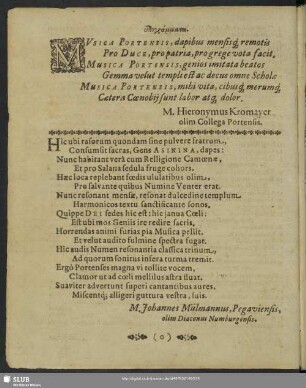 MUSICA PORTENSIS, dapibus mensisq́; remotis
Pro DUCE, pro patria, pro grege vota facit.
MUSICA PORTENSIS, genios imitata beatos
Gemma velut templi est ac decus omne Scholæ
MUSICA PORTENSIS, mihi vita, cibusq́; merumq́;
Cætera Cœnobij sunt labor atq́; dolor.
M. Hieronymus Kromayer
olim Collega Portensis.
Hic ubi rasorum quondam sine pulvere fratrum,
Consumsit sacras, Gens ASININA, dapes:
Nunc habitant verà cum Relligione Camœnæ,
Et pro Salana sedula fruge cohors.
Hæc loca replebant fœdis ululatibus olim,
Pro salvante quibus Numine Venter erat.
Nunc resonant mensæ, resonat dulcedine templum
Harmonicos textu sanctificante sonos,
Quippe DEI sedes hic est: hic janua Cœli:
Est ubi mos Geniis ire redire sacris,
Horrendas animi furias pia Musica pellit.
Et velut audito fulmine spectra fugat.
Hic audis Numen resonantia classica trinum,
Ad quorum sonitus infera turma tremit.
Ergò Portenses magna vi tollite vocem,
Clamor ut ad cœli mollius astra fluat.
Suaviter advertunt superi cantantibus aures.
Miscentq́; aligeri guttura vestra, suis.
M. Johannes Mülmannus, Pegaviensis,
olim Diaconus Numburgensis.
(o)
SLUB